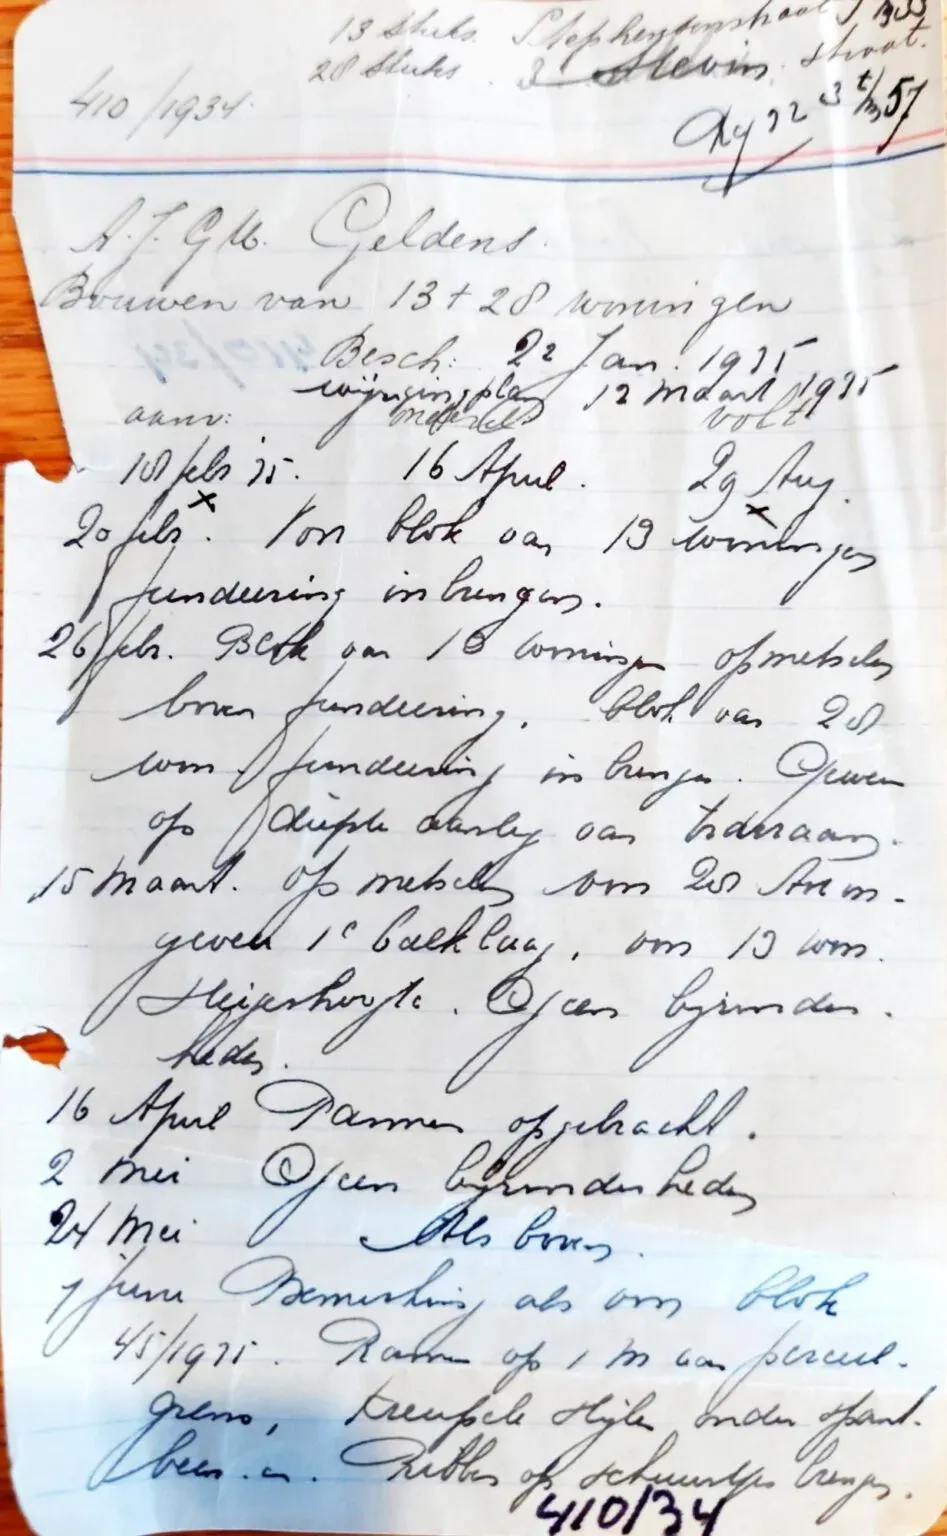 13 Stuks. Stephensonstraat
28 Stuks. Stevin straat.
410/1934
t/m 57
A. J. G. M. Geldens.
Bouwen van 13 + 28 woningen
Besch: 22 Jan. 1935
wijzigingsplan 12 Maart 1935
aanv: volt
18 febr 35. 16 April. 29 Aug.
20 febr. Voor blok van 13 woningen
fundeering inbrengen.
26 febr. Blok van 13 woningen opmetselen
boven fundeering. Blok van 28
won. fundeering inbrengen. Gewezen
op diepte aanleg van
15 Maart. opmetselen voor 28
1e balklaag, voor 13 won.
Steigerhoogte. Geen bijzonder-
heden.
16 April Pannen opgebracht.
2 Mei Geen bijzonderheden
24 Mei Als boven.
1 Juni Bemerking als voor blok
45/1935. Ramen op 1 M van perceel-
grens, stijlen onder spant-
been. en. Ribben op schuurtjes brengen.
410/34